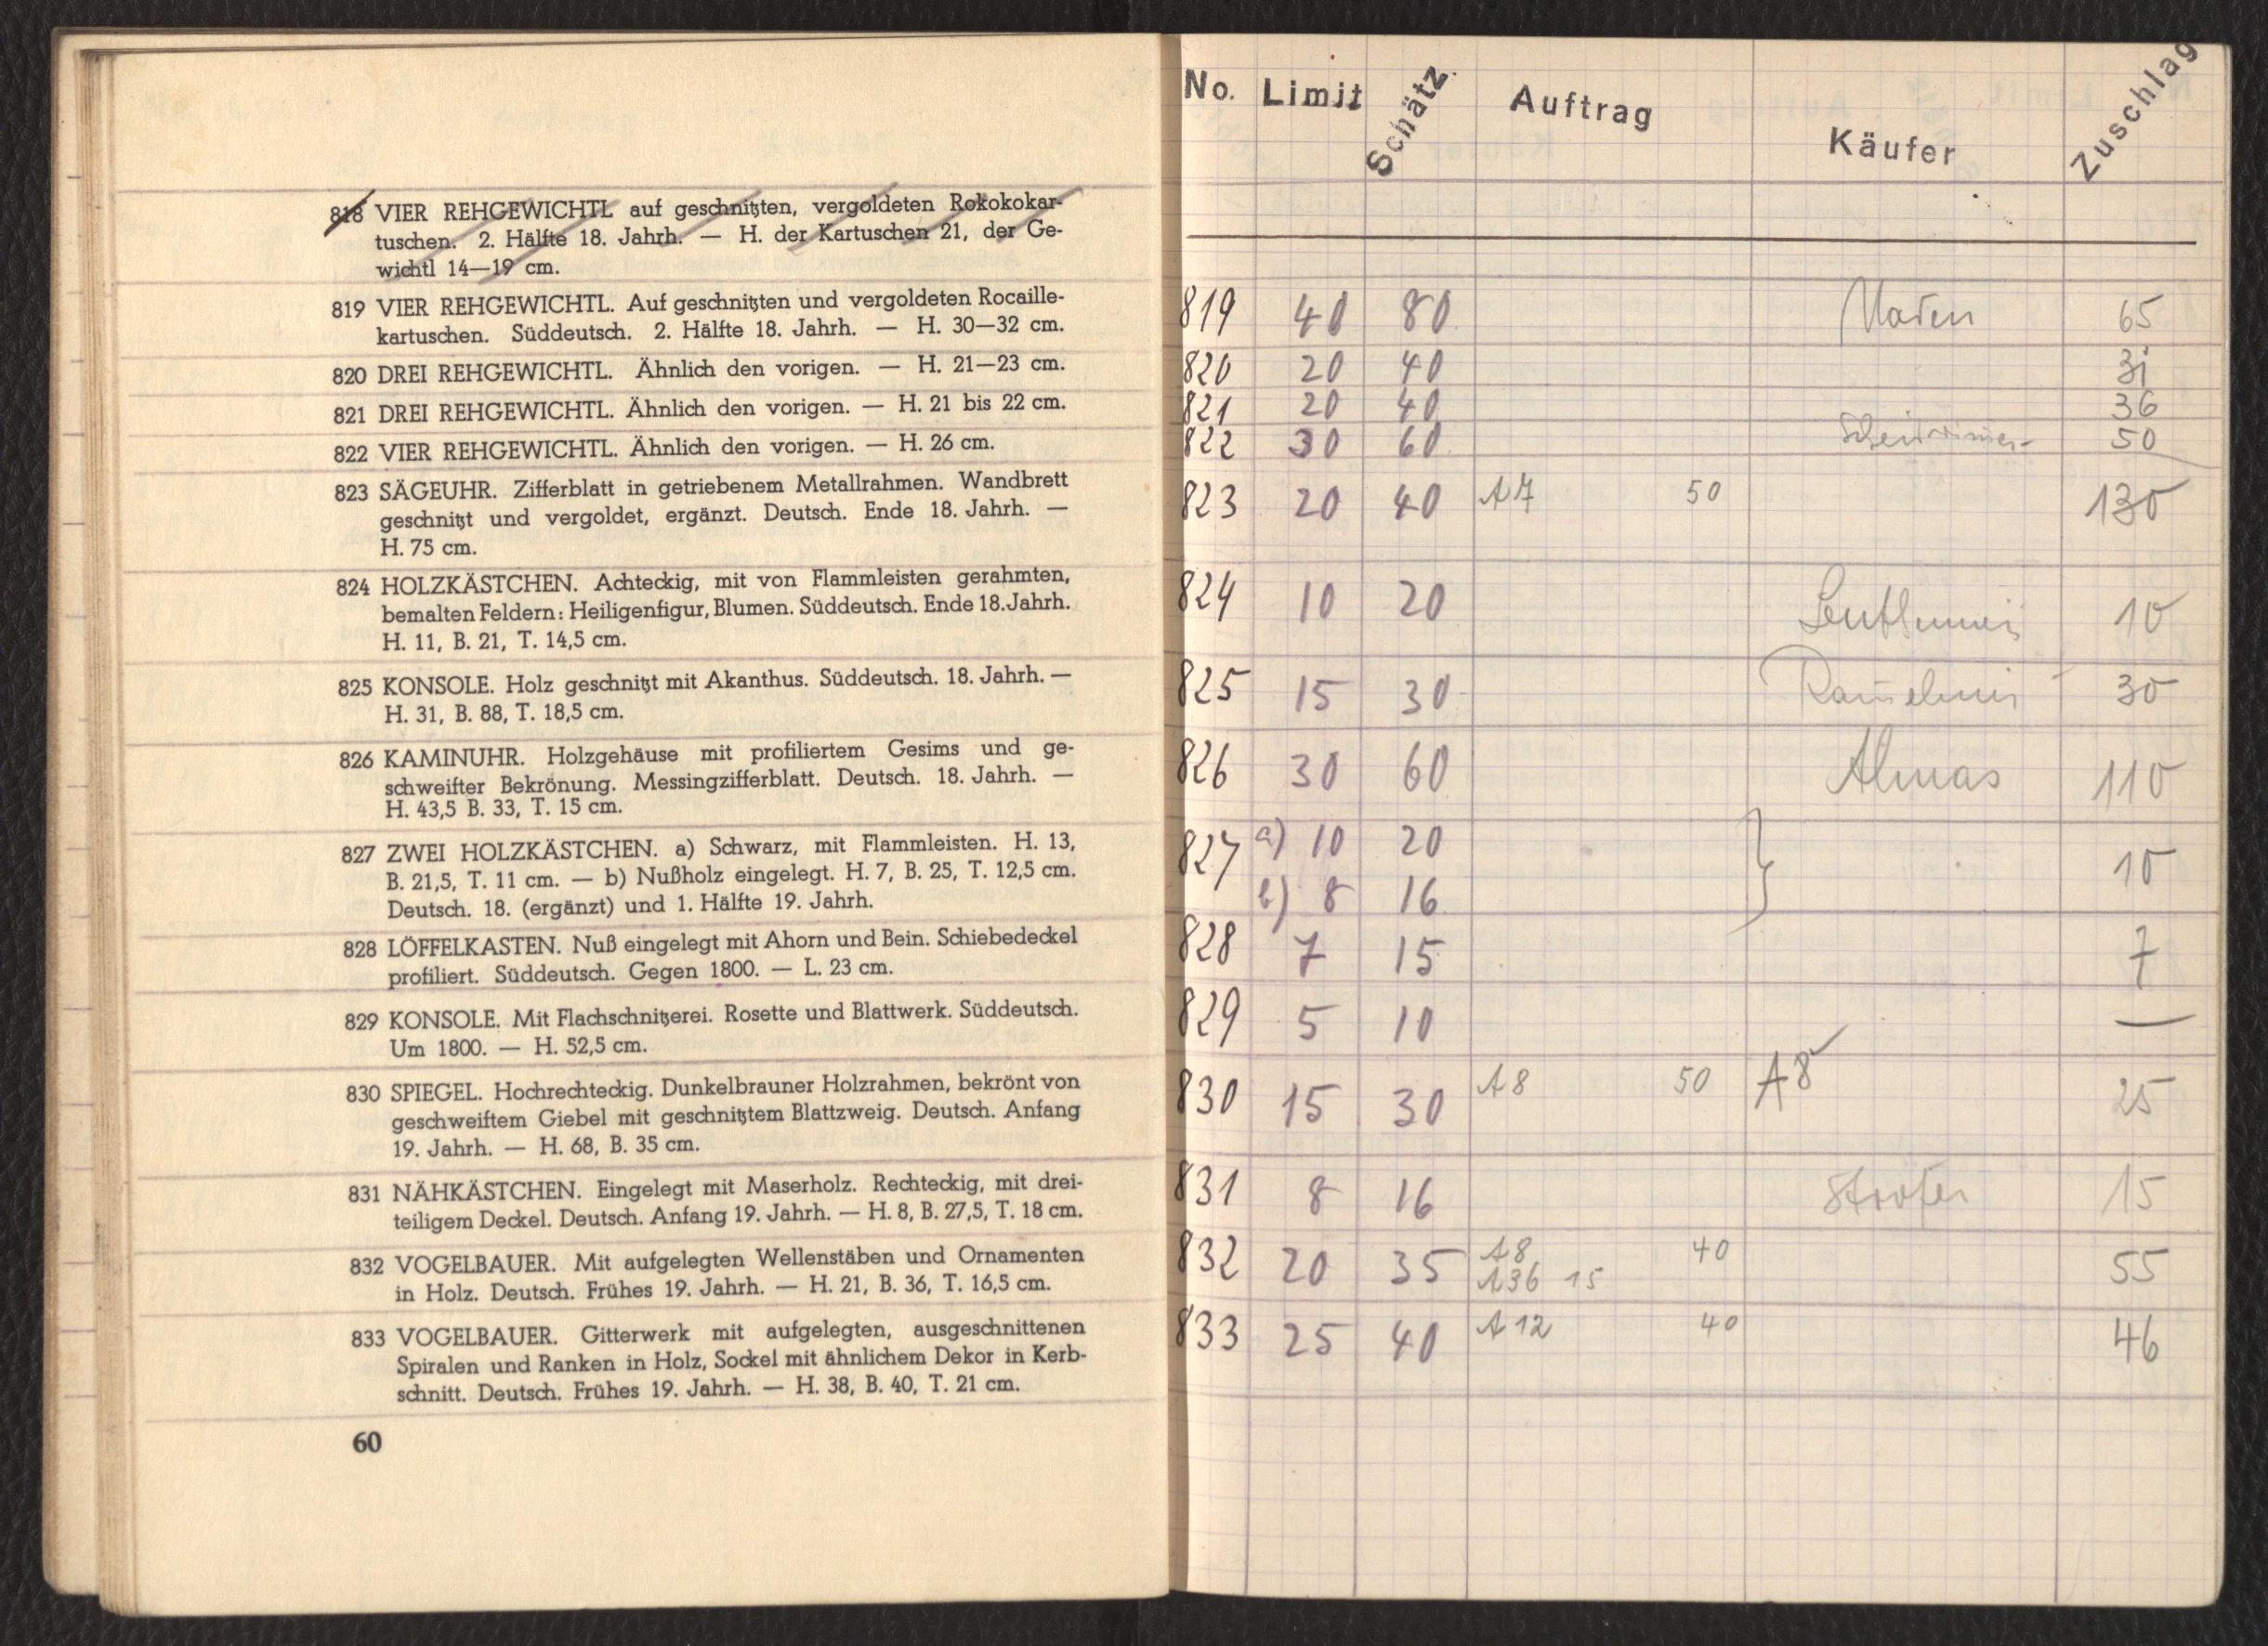 818 VIER REHGEWICHTL auf geschnitzten, vergoldeten Rokokokar-
tuschen. 2. Hälfte 18. Jahrh. — H. der Kartuschen 21, der Ge-
wichtl 14—19 cm.
819 VIER REHGEWICHTL. Auf geschnitzten und vergoldeten Rocaille-
kartuschen. Süddeutsch. 2. Hälfte 18. Jahrh. — H. 30—32 cm.
820 DREI REHGEWICHTL. Ähnlich den vorigen. — H. 21—23 cm.
821 DREI REHGEWICHTL. Ähnlich den vorigen. — H. 21 bis 22 cm.
822 VIER REHGEWICHTL. Ähnlich den vorigen. — H. 26 cm.
823 SÄGEUHR. Zifferblatt in getriebenem Metallrahmen. Wandbrett
geschnitzt und vergoldet, ergänzt. Deutsch. Ende 18. Jahrh. —
H. 75 cm.
824 HOLZKÄSTCHEN. Achteckig, mit von Flammleisten gerahmten,
bemalten Feldern: Heiligenfigur, Blumen. Süddeutsch. Ende 18. Jahrh.
H. 11, B. 21, T. 14,5 cm.
825 KONSOLE. Holz geschnitzt mit Akanthus. Süddeutsch. 18. Jahrh. —
H. 31, B. 88, T. 18,5 cm.
826 KAMINUHR. Holzgehäuse mit profiliertem Gesims und ge-
schweifter Bekrönung. Messingzifferblatt. Deutsch. 18. Jahrh. —
H. 43,5 B. 33, T. 15 cm.
827 ZWEI HOLZKÄSTCHEN. a) Schwarz, mit Flammleisten. H. 13,
B. 21,5, T. 11 cm. — b) Nußholz eingelegt. H. 7, B. 25, T. 12,5 cm.
Deutsch. 18. (ergänzt) und 1. Hälfte 19. Jahrh.
828 LÖFFELKASTEN. Nuß eingelegt mit Ahorn und Bein. Schiebedeckel
profiliert. Süddeutsch. Gegen 1800. — L. 23 cm.
829 KONSOLE. Mit Flachschnitzerei. Rosette und Blattwerk. Süddeutsch.
Um 1800. — H. 52,5 cm.
830 SPIEGEL. Hochrechteckig. Dunkelbrauner Holzrahmen, bekrönt von
geschweiftem Giebel mit geschnitztem Blattzweig. Deutsch. Anfang
19. Jahrh. — H. 68, B. 35 cm.
831 NÄHKÄSTCHEN. Eingelegt mit Maserholz. Rechteckig, mit drei-
teiligem Deckel. Deutsch. Anfang 19. Jahrh. — H. 8, B. 27,5, T. 18 cm.
832 VOGELBAUER. Mit aufgelegten Wellenstäben und Ornamenten
in Holz. Deutsch. Frühes 19. Jahrh. — H. 21, B. 36, T. 16,5 cm.
833 VOGELBAUER. Gitterwerk mit aufgelegten, ausgeschnittenen
Spiralen und Ranken in Holz, Sockel mit ähnlichem Dekor in Kerb-
schnitt. Deutsch. Frühes 19. Jahrh. — H. 38, B. 40, T. 21 cm.
60
No. Limit Schätz. Auftrag Käufer Zuschlag
819 40 80 65
820 20 40 31
821 20 40 36
822 30 60 50
823 20 40 A7 50 130
824 10 20 10
825 15 30 30
826 30 60 Almas 110
827 a) 10 20 10
b) 8 16
828 7 15 7
829 5 10 —
830 15 30 A8 50 A8 25
831 8 16 15
832 20 35 A8 40 55
A36 15
833 25 40 A12 40 46